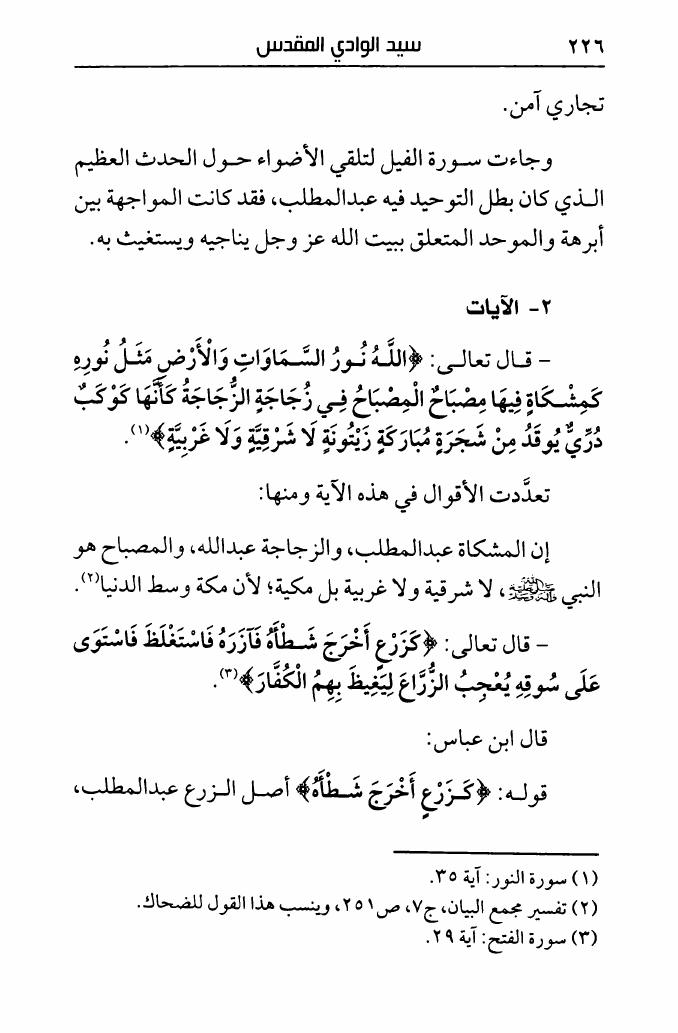 ٢٢٦ سيد الوادي المقدس
تجاري آمن.
وجاءت سورة الفيل لتلقي الأضواء حول الحدث العظيم
الذي كان بطل التوحيد فيه عبدالمطلب، فقد كانت المواجهة بين
أبرهة والموحد المتعلق ببيت الله عز وجل يناجيه ويستغيث به.
٢- الآيات
- قال تعالى: ﴿اللَّهُ نُورُ السَّمَاوَاتِ وَالْأَرْضِ مَثَلُ نُورِهِ
كَمِشْكَاةٍ فِيهَا مِصْبَاحٌ الْمِصْبَاحُ فِي زُجَاجَةٍ الزُّجَاجَةُ كَأَنَّهَا كَوْكَبٌ
دُرِّيٌّ يُوقَدُ مِنْ شَجَرَةٍ مُبَارَكَةٍ زَيْتُونَةٍ لَا شَرْقِيَّةٍ وَلَا غَرْبِيَّةٍ﴾(١).
تعدَّدت الأقوال في هذه الآية ومنها:
إن المشكاة عبدالمطلب، والزجاجة عبدالله، والمصباح هو
النبي ، لا شرقية ولا غربية بل مكية؛ لأن مكة وسط الدنيا(٢).
- قال تعالى: ﴿كَزَرْعٍ أَخْرَجَ شَطْأَهُ فَآزَرَهُ فَاسْتَغْلَظَ فَاسْتَوَى
عَلَى سُوقِهِ يُعْجِبُ الزُّرَّاعَ لِيَغِيظَ بِهِمُ الْكُفَّارَ﴾(٣).
قال ابن عباس:
قوله: ﴿كَزَرْعٍ أَخْرَجَ شَطْأَهُ﴾ أصل الزرع عبدالمطلب،
(١) سورة النور: آية ٣٥.
(٢) تفسير مجمع البيان، ج٧، ص٢٥١، وينسب هذا القول للضحاك.
(٣) سورة الفتح: آية ٢٩.